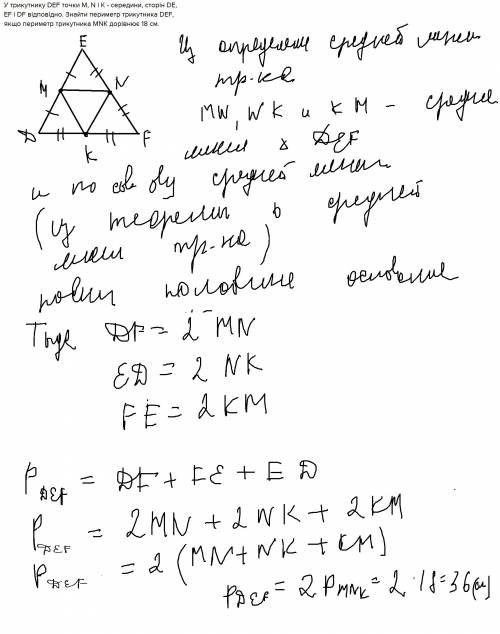 У трикутнику DEF точки M, N і K - середини, сторін DE,
EF і DF відповідно. Знайти периметр трикутника DEF,
якщо периметр трикутника MNK дорівнює 18 см.
E
M
N
D
K
F
Из определения средней линии
тр-ка
MN, NK и KM - средние
линии в DEF
и по св-ву средней линии
(из теоремы о средней
линии тр-ка)
половине основание
Тогда DF = 2 MN
ED = 2 NK
FE = 2 KM
P DEF = DF + FE + ED
P DEF = 2MN + 2NK + 2KM
P DEF = 2 (MN + NK + KM)
P DEF = 2 P MNK = 2 · 18 = 36 (см)